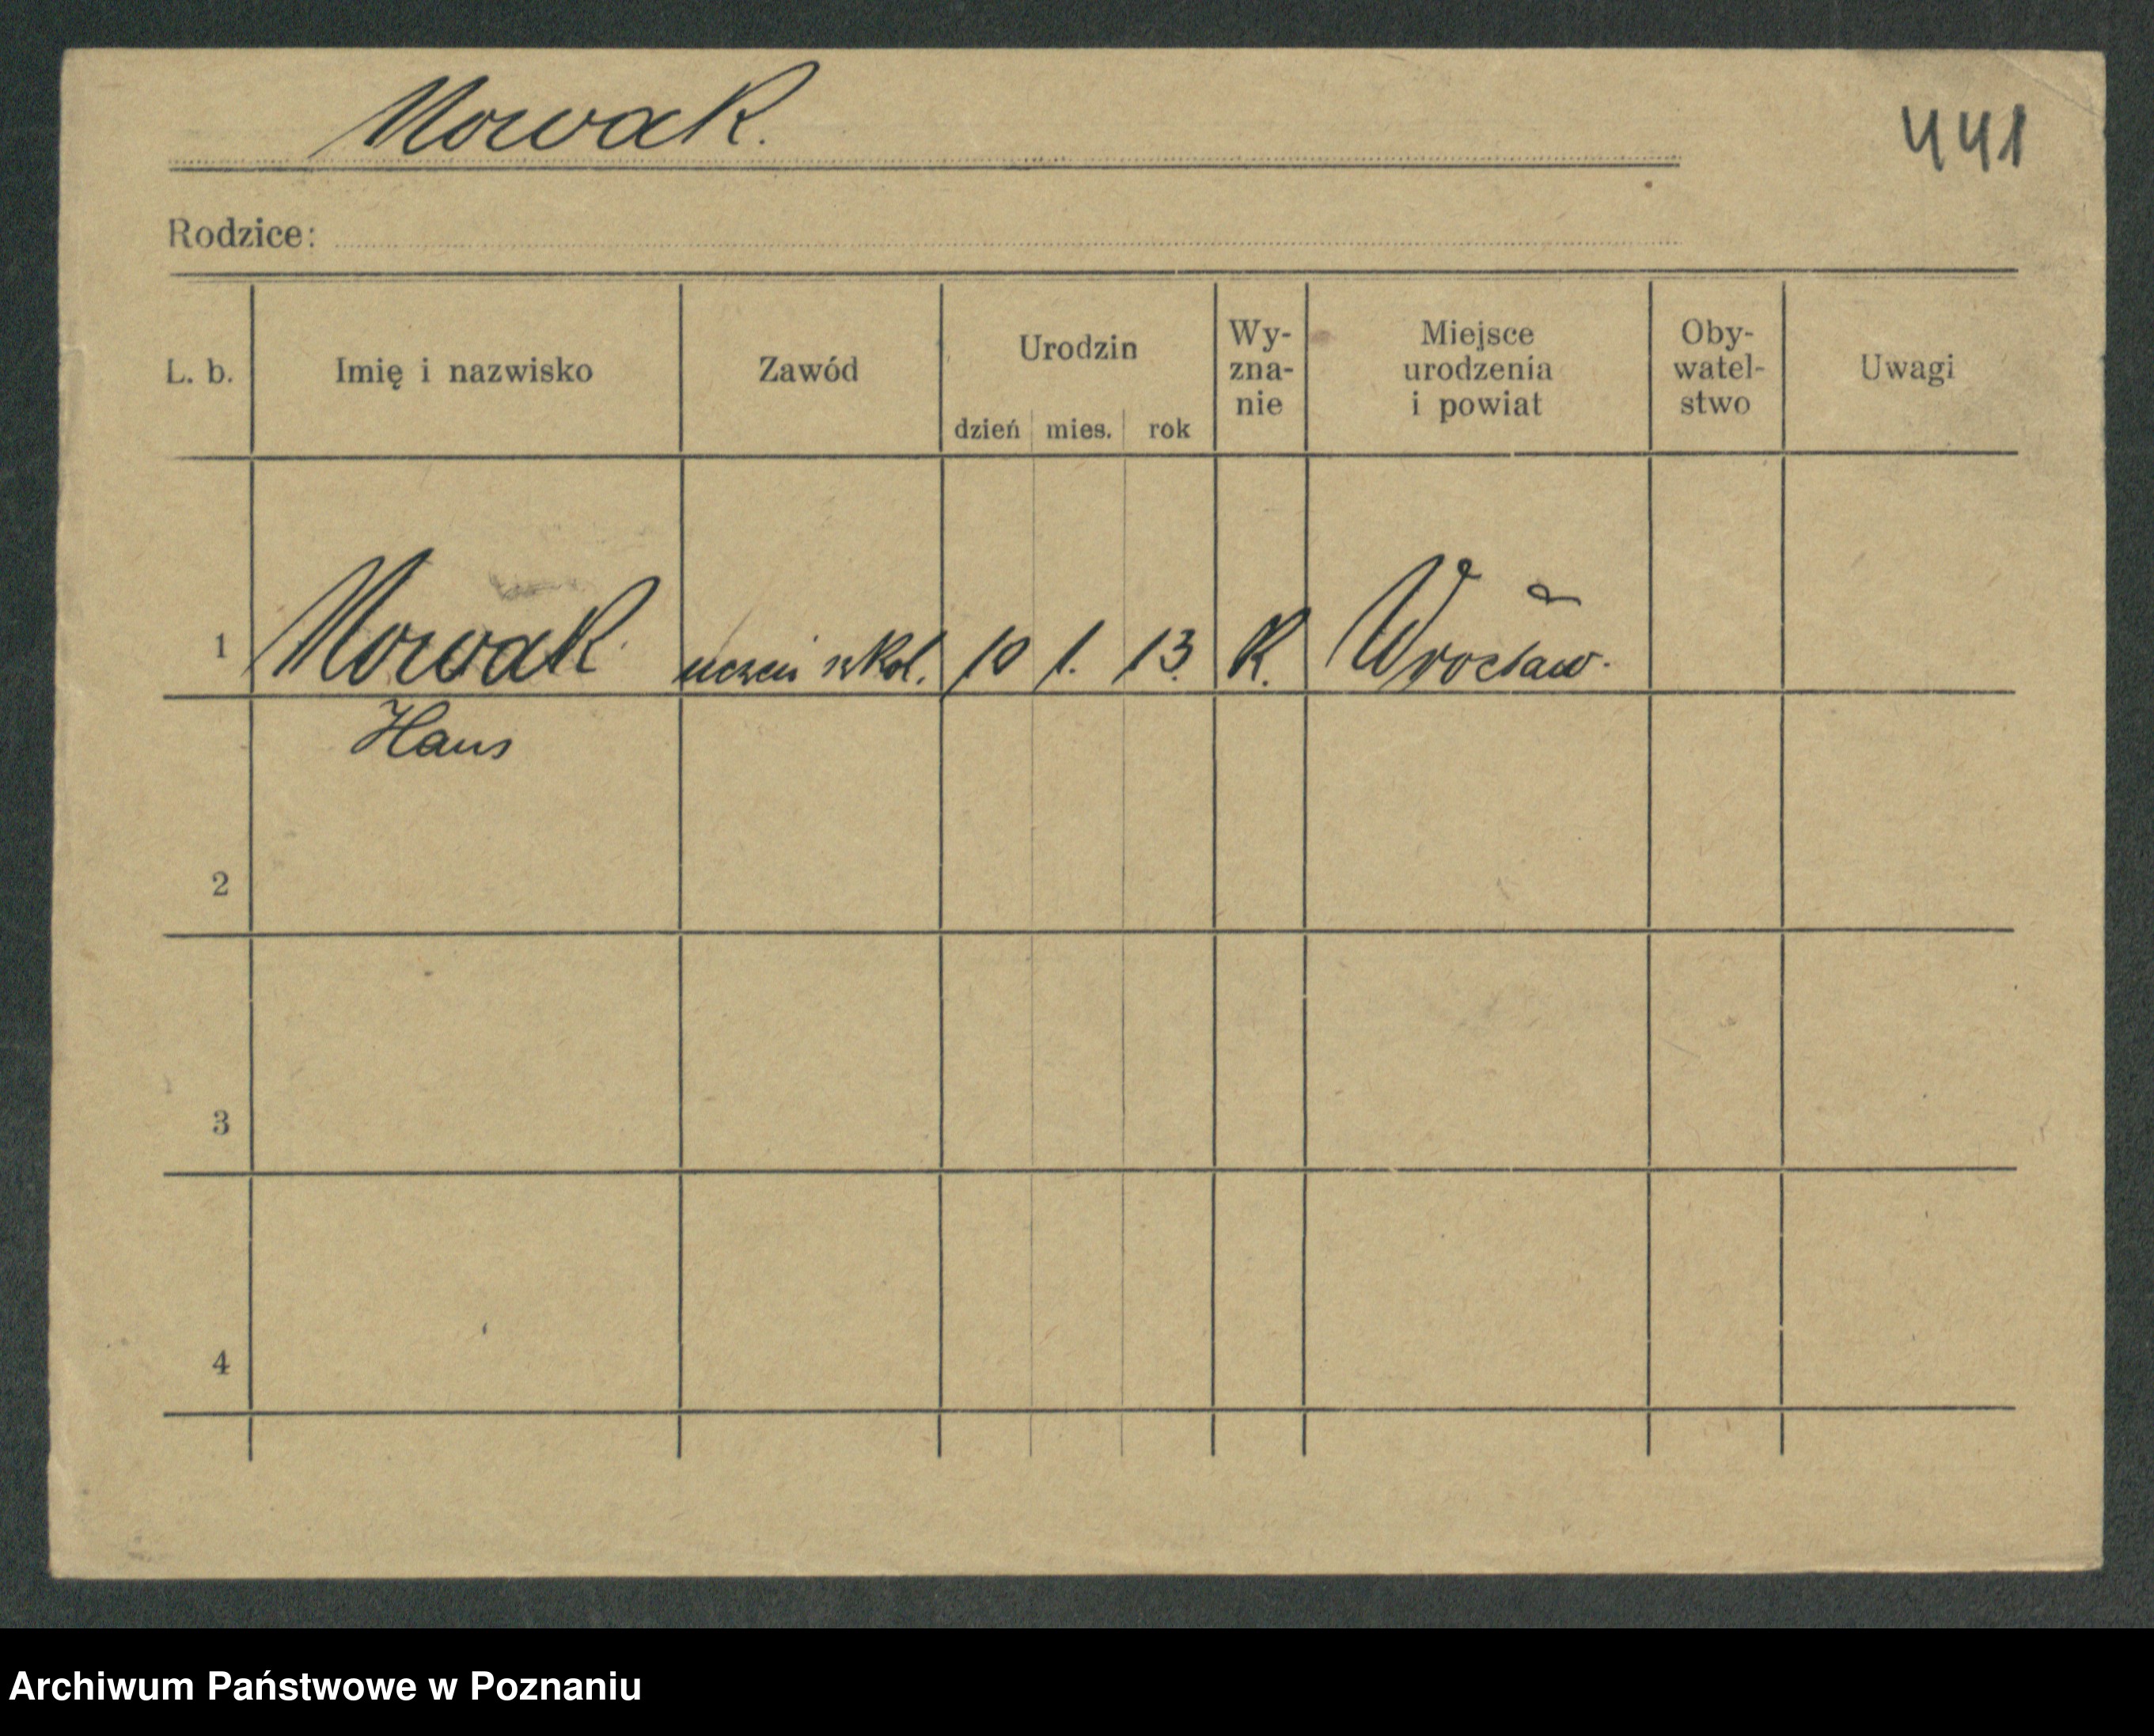 Nowak.
441
Rodzice:
L. b. Imię i nazwisko Zawód Urodzin dzień mies. rok Wy-zna-nie Miejsce urodzenia i powiat Oby-watel-stwo Uwagi
1 Nowak uczeń szkol. 10 1. 13. K. Wrocław.
Hans
2
3
4
Archiwum Państwowe w Poznaniu